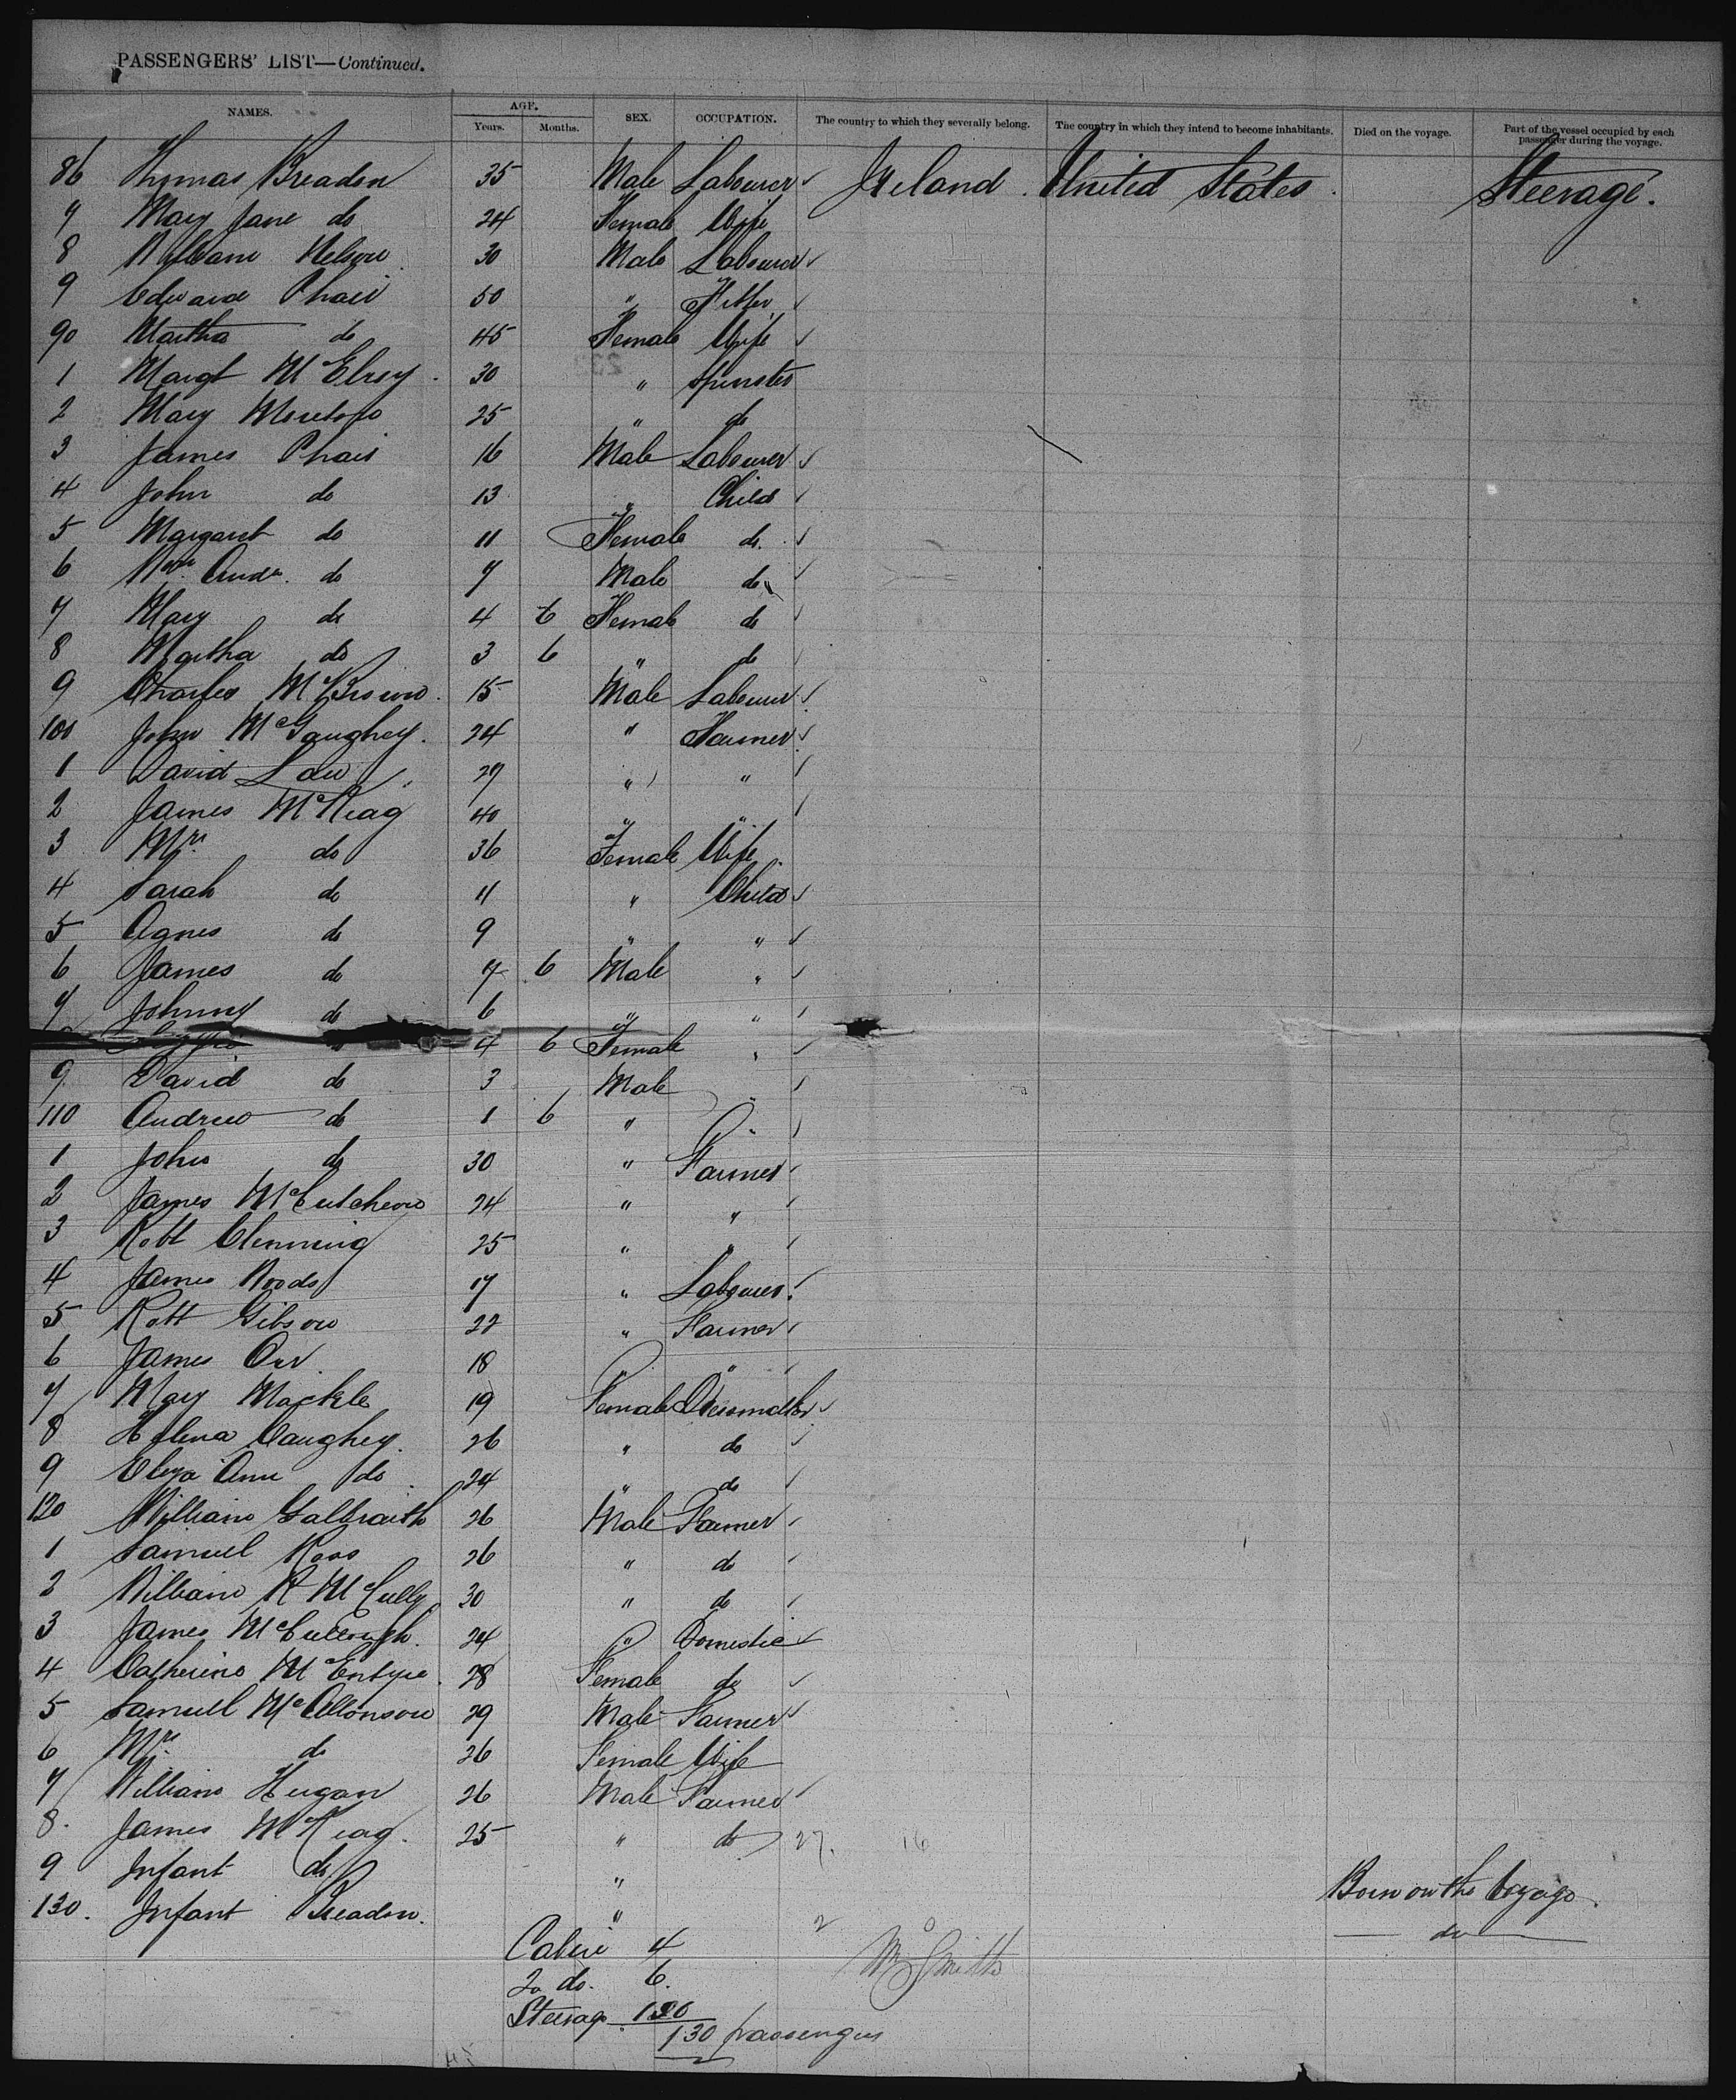 PASSENGERS' LIST—Continued.
NAMES. AGE. Years. Months. SEX. OCCUPATION. The country to which they severally belong. The country in which they intend to become inhabitants. Died on the voyage. Part of the vessel occupied by each passenger during the voyage.
86 Thomas Breadon 35 Male Labourer Ireland. United States. Steerage.
7 Mary Jane do 24 Female Wife
8 William Nelson 30 Male Labourer
9 Edward Phair 50 " 
90 Martha do 45 Female Wife
1 Margt McElroy 30 " Spinster
2 Mary 25 " do
3 James Phair 16 Male Labourer
4 John do 13 " Child
5 Margaret do 11 Female do.
6 Wm Andw. do 7 Male do
7 Mary do 4 6 Female do
8 Martha do 3 6 " do
9 Charles McBrown 15 Male Labourer
100 John McGaughey. 24 " Farmer
1 David Law 27 " "
2 James McKeag 40 " "
3 Mrs do 36 Female Wife
4 Sarah do 11 " Child
5 Agnes do 9 " "
6 James do 7 6 Male "
7 Johnny do 6 " "
do 4 6 Female "
9 David do 3 Male "
110 Andrew do 1 6 " "
1 John do 30 " Farmer
2 James McCutcheon 24 " "
3 Robt Clemming 25 " "
4 James Woods 17 " Labourer
5 Robt Gibson 22 " Farmer
6 James Orr 18 " "
7 Mary Mackle 19 Female Dressmaker
8 Helena Caughey. 26 " do
9 Eliza Ann do 24 " do
120 William Galbraith 26 Male Farmer
1 Samuel Ross 26 " do
2 William R McCully 30 " do
3 James McCullough. 24 " Domestic
4 Catherine McEntyre. 28 Female do
5 Samuell McAllonson 29 Male Farmer
6 Mrs do 26 Female Wife
7 William Hugan 26 Male Farmer
8. James McKeag. 25 " do 27. 16
9 Infant do " Born on the Voyage.
130. Infant Breadon. " 2 do
Cabin 4
2o do. 6.
Steerage 120
130 passengers